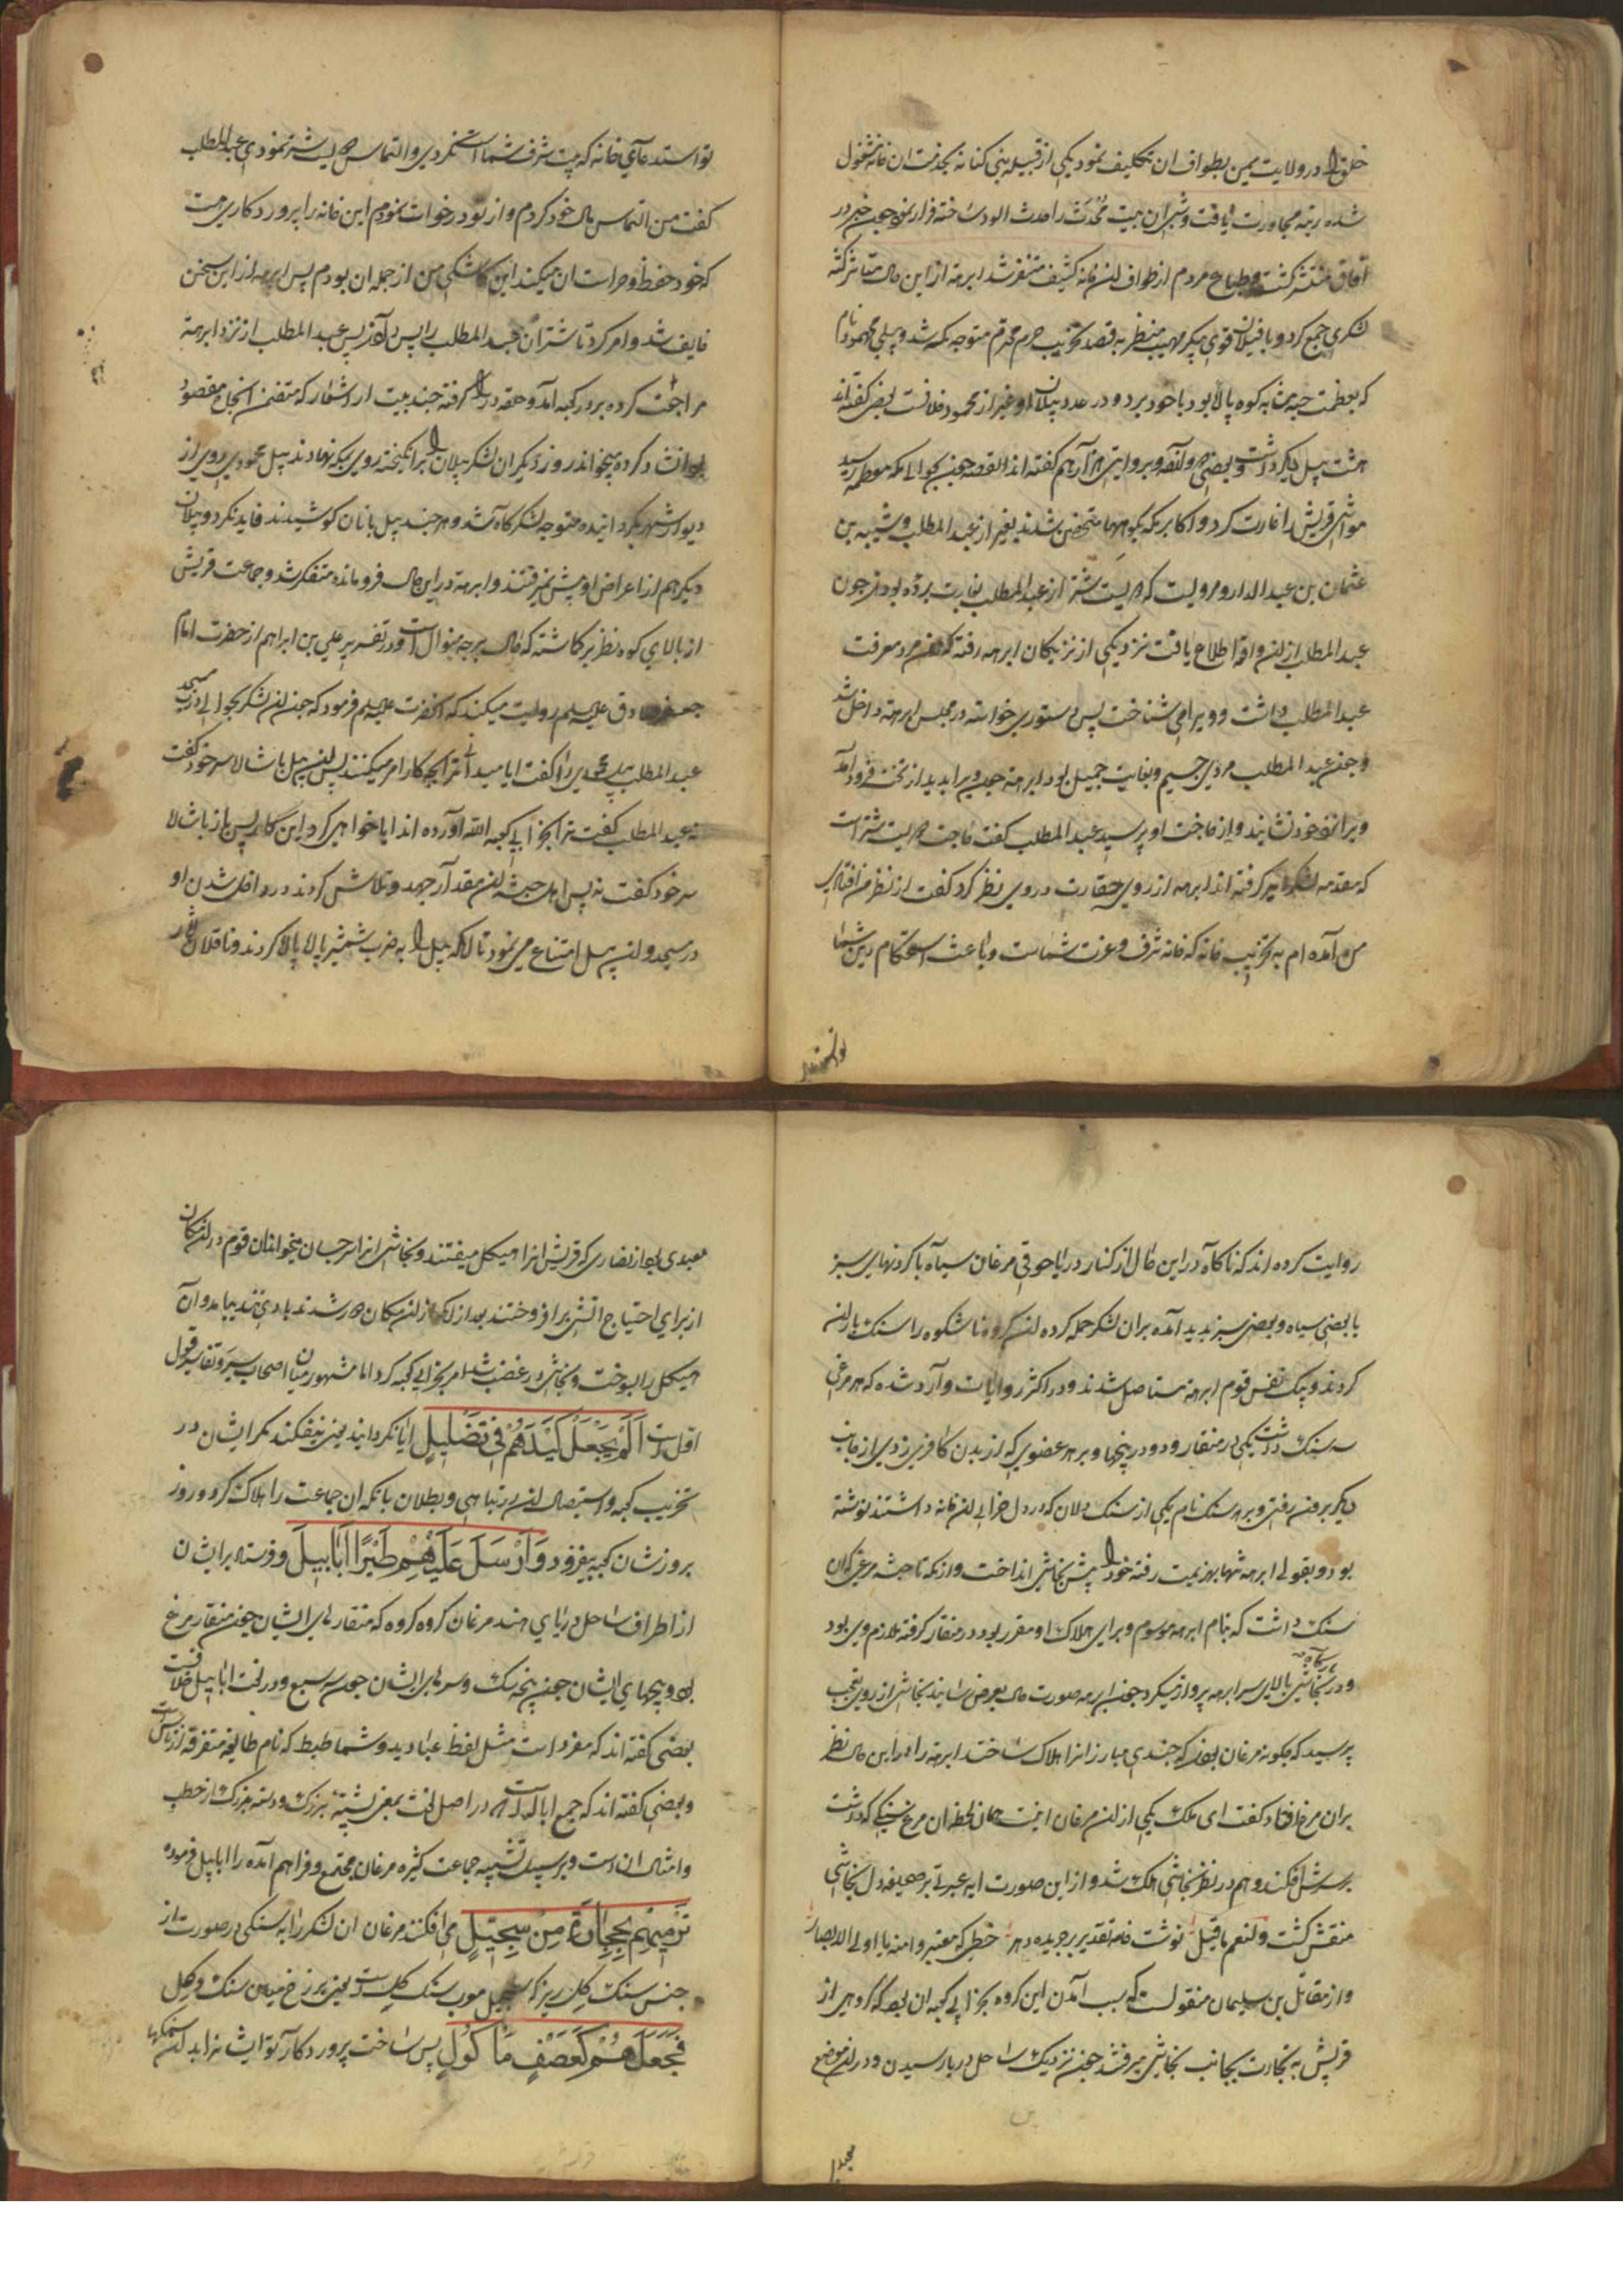 خلق را در ولایت یمن بطواف ان تکلیف نمود یکی از قبیله بنی کنانه بخدمت ان خانه مشغول
شده رتبه مجاورت یافت و شبی ان بیت محدث را حدث الود ساخته فرار نمود چون خبر در
افاق منتشر کشت و طباع مردم از طواف ان خانه کثیف متنفر شد ابرهة از این حال متاثر کشته
لشکری جمع کرد و با فیلان قوی پیکر مهیب منظر به قصد تخریب حرم محترم متوجه مکه شد و پیلی محمود نام
که بعظمت جثه مثابه کوه پالا بود با خود برد و در عدد پیلان او غیر از محمود خلافست بعض کفته اند
هشت پیل دیکر داشت و بعضی دوازده و بروایتی هزار هم کفته اند القصه چون بحوالی مکه معظمه رسید
مواشی قریش را غارت کرد و اکابر مکه بکوهها متحصن شدند بغیر از عبد المطلب و شیبه بن
عثمان بن عبد الدار و مرویست که دویست شتر از عبد المطلب بغارت برده بودند چون
عبد المطلب از ان واقعه اطلاع یافت نزد یکی از نزدیکان ابرهه رفته که معرفت
عبد المطلب داشت و ویرا می شناخت پس دستوری خواسته در مجلس ابرهة داخل شد
و چون عبد المطلب مردی جسیم و بغایت جمیل بود ابرهة چون ویرا بدید از تخت فرود آمد
و ویرا نزد خود نشانید و از حاجت او پرسید عبد المطلب کفت حاجت من دویست شتر است
که مقدمه لشکر شما کرفته اند ابرهه از روی حقارت در وی نظر کرد کفت از نظر من افتادی
من آمده ام به تخریب خانه که خانه شرف و عزت شماست و باعث استحکام دین شما
تواستدعای خانه که بیت شرف شما است نکردی و التماس دویست شتر نمودی عبد المطلب
کفت من التماس مال خود کردم و از تو درخواست نمودم این خانه را پروردکاری هست
که خود حفظ و حراست ان میکند این کاشکی من از جمله ان بودم پس ابرهه از این سخن
خایف شد و امر کرد تا شتران عبد المطلب را پس دادند پس عبد المطلب از نزد ابرهة
مراجعت کرده بر در کعبه آمد و حلقه در را کرفته چند بیت از اشعار که متضمن انجاح مقصود
بود انشاد کرده میخواند روز دیکر ان لشکر پیلان را برانکیخته روی بمکه نهادند پیل محمودی روی از
دیوار شهر بکردانیده متوجه لشکرکاه شد و هر چند پیل بانان کوشیدند فایده نکرد و پیلان
دیکر هم از اعراض او پیش نمیرفتند و ابرهة در این حال فرومانده متفکر شد و جماعت قریش
از بالای کوه نظر برکماشته که حال بر چه منوال است و در تفسیر علی بن ابراهیم از حضرت امام
جعفر صادق علیه السلم روایت میکند که آنحضرت علیه السلم فرمود که چون ان لشکر بحوالی در مسجد
عبد المطلب پیل محمودی را کفت ایا میدانی ترا بچه کار امر میکنند پس ان پیل باشاره سر خود کفت
نه عبد المطلب کفت ترا بخرابی کعبه الله آورده اند ایا خواهی کرد این کار پس باز باشاره
سر خود کفت نه پس اهل حبشه ان مقدار جهد و تلاش کردند در داخل شدن او
در مسجد و ان پیل امتناع می نمود تا انکه پیل را به ضرب شمشیر پاره پاره کردند و ناقلان آثار
توا استدعا
روایت کرده اند که ناکاه در این حال از کنار دریا جوقی مرغان سیاه با کردنهای سبز
یا بعضی سیاه و بعضی سبز پدید آمده بران لشکر حمله کرده ان کروه ناشکوه را سنک باران
کردند و بیک نفس قوم ابرهة مستاصل شدند و در اکثر روایات وارد شده که هر مرغی
سه سنک داشت یکی در منقار و دو در پنجها و بر هر عضوی که از بدن کافری زدی از جانب
دیکر برون رفتی و بر هر سنک نام یکی از سنک دلان که در دل خرابی ان خانه داشتند نوشته
بود و بقولی ابرهه تنها بهزیمت رفته خود را پیش نجاشی انداخت و از مکه تا حبشه مرغی که ان
سنک داشت که بنام ابرهه موسوم و برای هلاک او مقرر بود در منقار کرفته ملازم وی بود
و در بارکاه نجاشی بالای سر ابرهه پرواز میکرد چون ابرهه صورت حال بعرض رسانید نجاشی از روی تعجب
پرسید که چکونه مرغان بودند که چندی مبارزانرا هلاک ساختند ابرهة را در این حال نظر
بران مرغ افتاد کفت ای ملک یکی از ان مرغان اینست همان لحظه ان مرغ سنکی که داشت
بر سرش افکند و هم در نظر نجاشی هلاک شد و از این صورت ایه عبرتی بر صحیفه دل نجاشی
منقش کشت و لنعم ما قیل نوشت خامه تقدیر بر جریده دهر خطی که معتبر وا منه یا اولی الابصار
و از مقاتل بن سلیمان منقولست که سبب آمدن این کروه بخرابی کعبه ان بود که کروهی از
قریش به تجارت بجانب نجاشی میرفتند چون نزدیک ساحل دریا رسیدند و در ان موضع
معبدی
معبدی بود از نصاری که قریش انرا هیکل میکفتند و نجاشی انرا سرجسان میخواند ان قوم در ان مکان
از برای احتیاج اتشی برافروختند بعد از انکه از ان مکان دور شدند بادی تند بیامد و ان
هیکل را بسوخت و نجاشی در غضب شده امر بخرابی کعبه کرد اما مشهور میان اصحاب سیر و تفاسیر قول
اول است اَلَمْ یَجْعَلْ کَیْدَهُمْ فی تَضْلیلٍ ایا نکردانید یعنی بیفکند مکر ایشان در
تخریب کعبه و استیصال اهل ان در تباهی و بطلان بانکه ان جماعت را هلاک کرد و روز
بروز شان کعبه بیفزود وَاَرْسَلَ عَلَیْهِمْ طَیْرًا اَبابیلَ و فرستاد بر ایشان
از اطراف ساحل دریای هند مرغان کروه کروه که منقارهای ایشان چون منقار مرغ
بود و پنجهای ایشان چون پنجه سک و سرهای ایشان چون سر سبع و در لغت ابابیل خلافست
بعضی کفته اند که مفرد است مثل لفظ عبادید و شماطیط که نام طایفه متفرقه از ناس است
و بعضی کفته اند که جمع اباله است که در اصل لغت بمعنی پشتهٔ بزرک و دسته بزرک از حطب
و امثال ان است و بر سبیل تشبیه جماعت کثیره مرغان مجتمع و فراهم آمده را ابابیل فرموده
تَرْمیهِمْ بِحِجارَةٍ مِنْ سِجّیلٍ می افکند مرغان ان لشکر را به سنکی در صورت از
جنس سنک کل ریزه که سجیل معرب سنک کل است یعنی برزخ میان سنک و کل
فَجَعَلَهُمْ کَعَصْفٍ مَأکُولٍ پس ساخت پروردکار تو ایشانرا بد ان سنکها